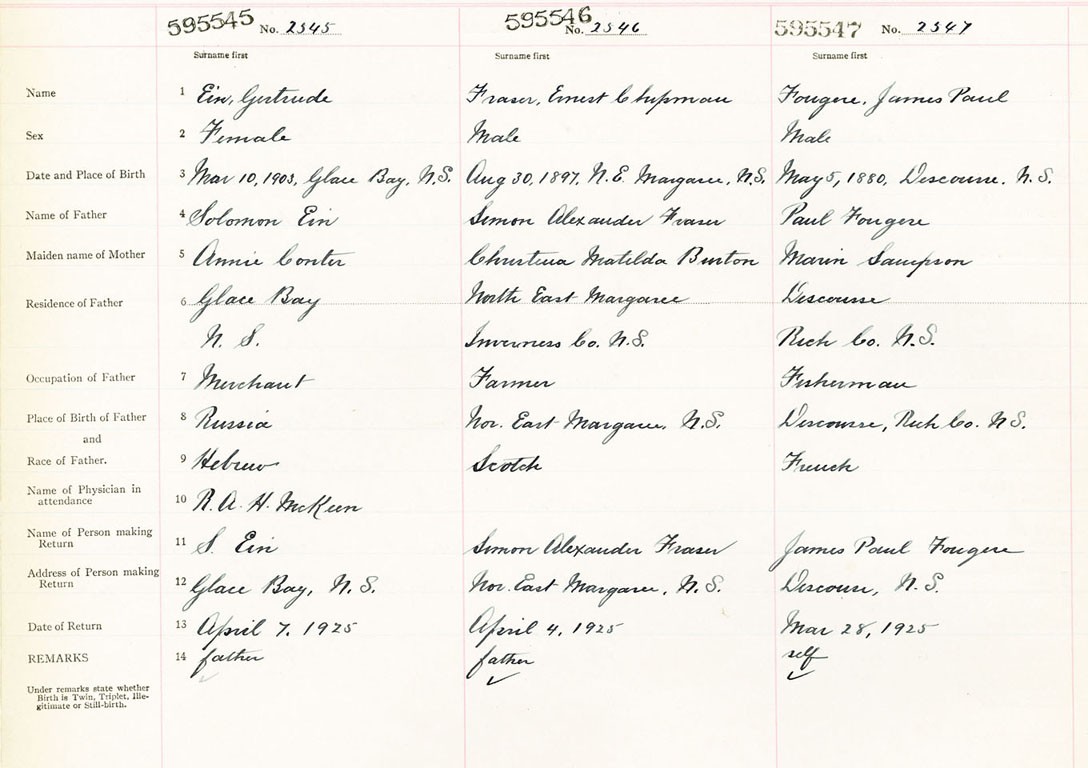 595545 No. 2545 595546 No. 2546 595547 No. 2547
Surname first Surname first Surname first
Name 1 Ein, Gertrude Fraser, Ernest Chipman Fougere, James Paul
Sex 2 Female Male Male
Date and Place of Birth 3 Mar 10, 1903, Glace Bay, N.S. Aug 30, 1897, N.E. Margaree, N.S. May 5, 1880, Descousse, N.S.
Name of Father 4 Solomon Ein Simon Alexander Fraser Paul Fougere
Maiden name of Mother 5 Annie Conter Christena Matilda Burton Marin Sampson
Residence of Father 6 Glace Bay North East Margaree Descousse
N. S. Inverness Co. N.S. Rich Co. N.S.
Occupation of Father 7 Merchant Farmer Fisherman
Place of Birth of Father 8 Russia Nor. East Margaree, N.S. Descousse, Rich Co. N S.
and
Race of Father. 9 Hebrew Scotch French
Name of Physician in
attendance 10 R. A. H. McKeen
Name of Person making
Return 11 S. Ein Simon Alexander Fraser James Paul Fougere
Address of Person making
Return 12 Glace Bay, N. S. Nor. East Margaree, N. S. Descouse, N. S.
Date of Return 13 April 7, 1925 April 4, 1925 Mar 28, 1925
REMARKS 14 father father self
Under remarks state whether
Birth is Twin, Triplet, Ille-
gitimate or Still-birth.